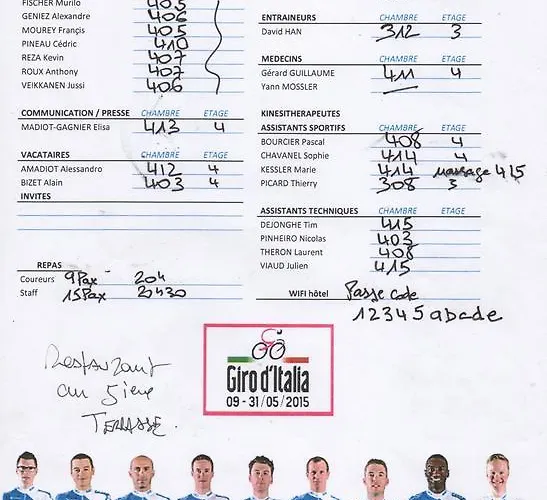 FISCHER Murilo 405
GENIEZ Alexandre 406
MOUREY Françis 405
PINEAU Cédric 410
REZA Kevin 407
ROUX Anthony 407
VEIKKANEN Jussi 406
COMMUNICATION / PRESSE CHAMBRE ETAGE
MADIOT-GAGNIER Elisa 413 4
VACATAIRES CHAMBRE ETAGE
AMADIOT Alessandro 412 4
BIZET Alain 403 4
INVITES
REPAS
Coureurs 9 Pax 20h
Staff 15 Pax 20h30
ENTRAINEURS CHAMBRE ETAGE
David HAN 312 3
MEDECINS CHAMBRE ETAGE
Gérard GUILLAUME 411 4
Yann MOSSLER
KINESITHERAPEUTES
ASSISTANTS SPORTIFS CHAMBRE ETAGE
BOURCIER Pascal 408 4
CHAVANEL Sophie 414 4
KESSLER Marie 414 massage 415
PICARD Thierry 308 3
ASSISTANTS TECHNIQUES CHAMBRE ETAGE
DEJONGHE Tim 415
PINHEIRO Nicolas 403
THERON Laurent 408
VIAUD Julien 415
WIFI hôtel Passe code
12345abcde
Restaurant
au 5ieme
TERRASSE.
Giro d'Italia
09 - 31/05/2015